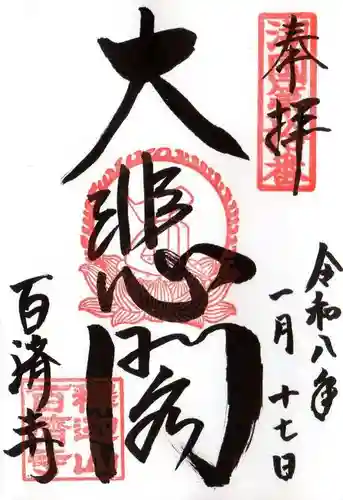 奉拝
令和八年
一月十七日
大悲閣
百済寺
釈迦山
百済寺